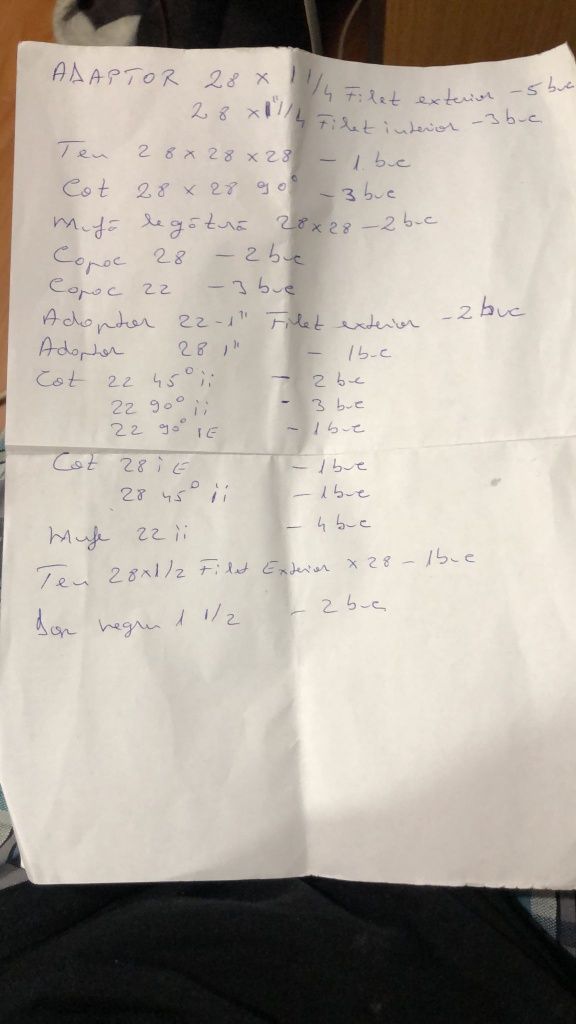 ADAPTOR 28 x 1 1/4 Filet exterior - 5 buc
28 x 1" 1/4 Filet interior - 3 buc
Teu 28 x 28 x 28 - 1 buc
Cot 28 x 28 90° - 3 buc
Mufă legătură 28 x 28 - 2 buc
Capac 28 - 2 buc
Capac 22 - 3 buc
Adaptor 22 - 1" Filet exterior - 2 buc
Adaptor 28 1" - 1 buc
Cot 22 45° ii - 2 buc
22 90° ii - 3 buc
22 90° iE - 1 buc
Cot 28 iE - 1 buc
28 45° ii - 1 buc
Mufe 22 ii - 4 buc
Teu 28 x 1/2 Filet Exterior x 28 - 1 buc
Dop negru 1 1/2 - 2 buc